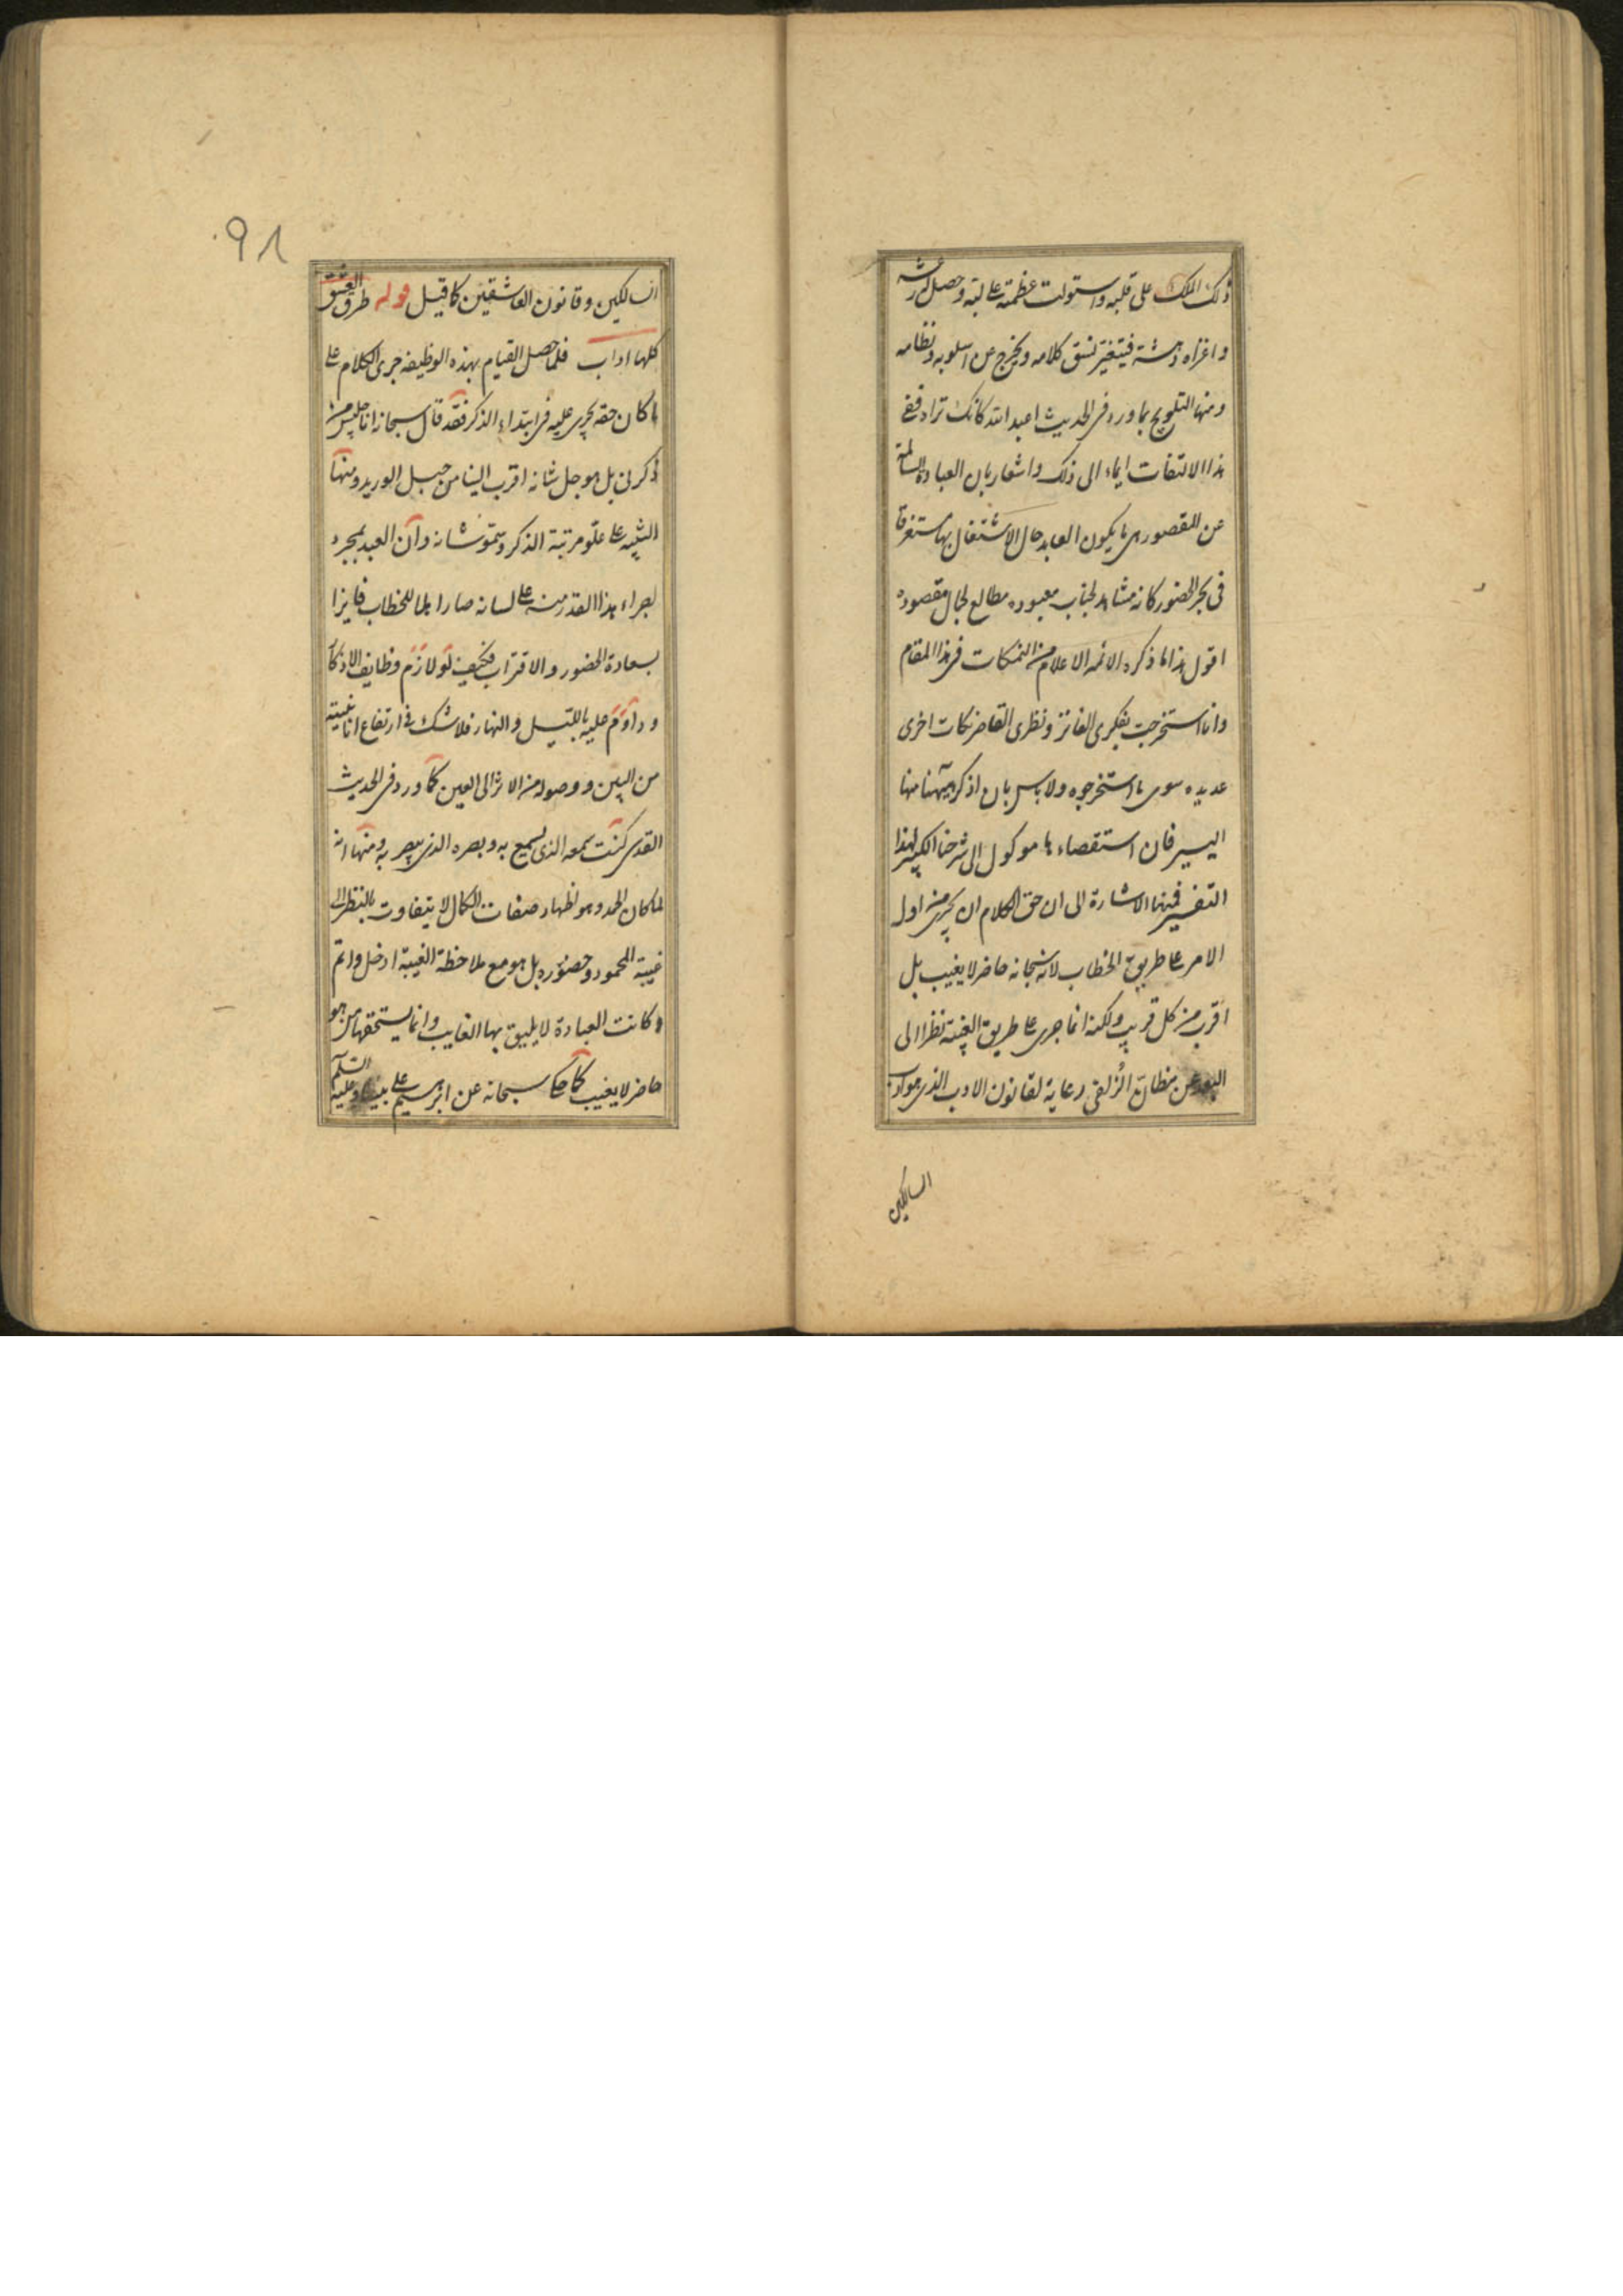 ذلك الملك على قلبه واستولت عظمته على لبه وحصل له رعشة
واعتراه دهشة فيتغير نسق كلامه ويخرج عن اسلوبه ونظامه
ومنها التلويح بما ورد فى الحديث اعبد الله كانك تراه ففى
هذا الالتفات ايماء الى ذلك واشعار بان العبادة السالمة
عن القصور هى ما يكون العابد حال الاشتغال بها مستغرقا
فى بحر الحضور كانه مشاهد لجناب معبوده مطالع لجمال مقصوده
اقول هذا ما ذكره الائمه الاعلام من النكات فى هذا المقام
وانا استخرجت بفكرى الفاتر ونظرى القاصر نكات اخرى
عديده سوى ما استخرجوه ولا باس بان اذكر ههنا منها
اليسير فان استقصاءها موكول الى شرحنا الكبير لهذا
التفسير فمنها الاشارة الى ان حق الكلام ان يجرى من اول
الامر على طريق الخطاب لانه سبحانه حاضر لا يغيب بل
اقرب من كل قريب ولكنه انما جرى على طريق الغيبة نظرا الى
البعد عن مظان الزلفى رعاية لقانون الادب الذى هو داب
السالكين
السالكين وقانون العاشقين كما قيل قوله طرق العشق
كلها اداب فلما حصل القيام بهذه الوظيفه جرى الكلام على
ما كان حقه يجرى عليه فى ابتداء الذكر فقد قال سبحانه انا جليس من
ذكرنى بل هو جل شانه اقرب الينا من حبل الوريد ومنها
التنبيه على علو مرتبة الذكر وسمو شانه وان العبد بمجرد
اجراء هذا القدر منه على لسانه صار اهلا للخطاب فايزا
بسعادة الحضور والاقتراب فكيف لو لازم وظايف الاذكار
وداوم عليه بالليل والنهار فلا شك فى ارتفاع
من البين ووصوله من الاثر الى العين كما ورد فى الحديث
القدسى كنت سمعه الذى يسمع به وبصره الذى يبصر به ومنها انه
لما كان الحمد وهو اظهار صفات الكمال لا يتفاوت بالنظر الى
غيبة المحمود وحضوره بل هو مع ملاحظة الغيبة ادخل واتم
وكانت العبادة لا يليق بها الغايب وانما يستحقها من هو
حاضر لا يغيب كما حكى سبحانه عن ابرهيم على نبينا وعليه السلم